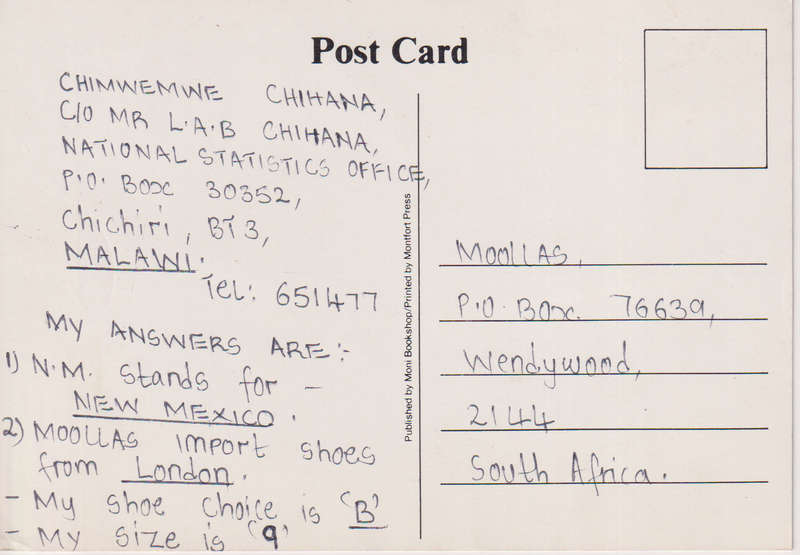 Post Card
CHIMWEMWE CHIHANA,
C/O MR L.A.B CHIHANA,
NATIONAL STATISTICS OFFICE,
P.O. BOX 30352,
Chichiri, BT3,
MALAWI.
Tel: 651477
MY ANSWERS ARE:-
1) N.M. Stands for -
NEW MEXICO.
2) MOOLLAS IMPORT shoes
from London.
- My shoe choice is 'B'
- My size is '9'
Published by Moni Bookshop/Printed by Montfort Press
Moollas,
P.O. Box. 76639,
Wendywood,
2144
South Africa.